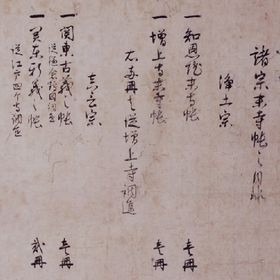 諸宗末寺帳之目録
浄土宗
一 知恩院末寺帳 壱冊
一 増上寺末寺帳 壱冊
右両冊者従増上寺調進
真言宗
一 関東古義之帳 壱冊
一 関東新義之帳 弐冊
従江戸四ケ寺調進